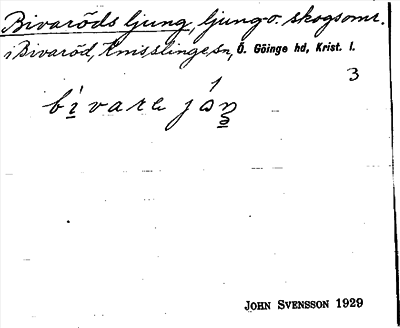 Bivaröds ljung, ljung- o. skogsomr.
i Bivaröd, Emislinge sn, Ö. Göinge hd, Krist. l.
3
JOHN SVENSSON 1929